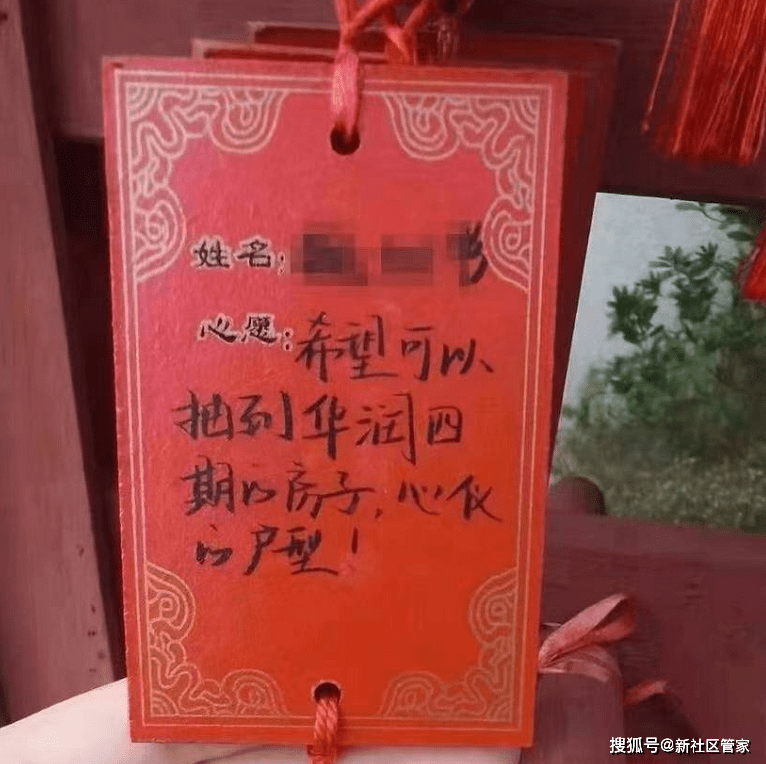 姓名:
心愿:希望可以
抽到华润四
期的房子,心仪
的户型!
搜狐号@新社区管家